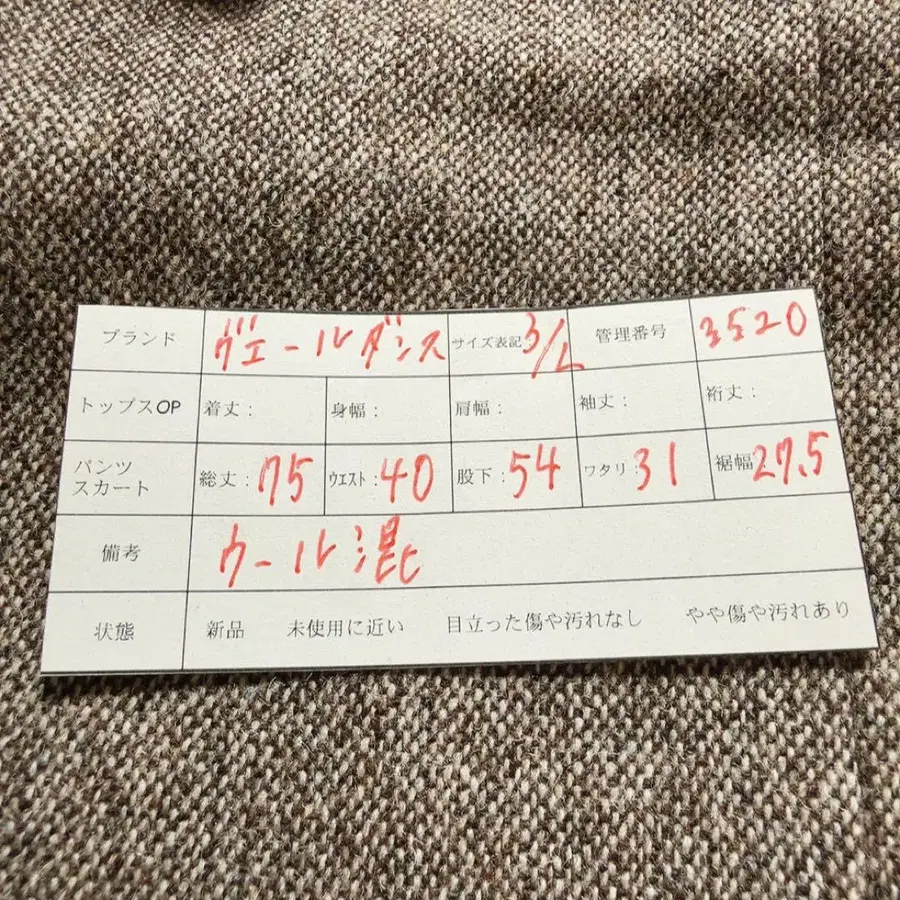 ブランド ヴェールダンス サイズ表記: 3/L 管理番号 3520
トップスOP 着丈: 身幅: 肩幅: 袖丈: 裄丈:
パンツ スカート 総丈: 75 ウエスト: 40 股下: 54 ワタリ: 31 裾幅 27.5
備考 ウール混
状態 新品 未使用に近い 目立った傷や汚れなし やや傷や汚れあり